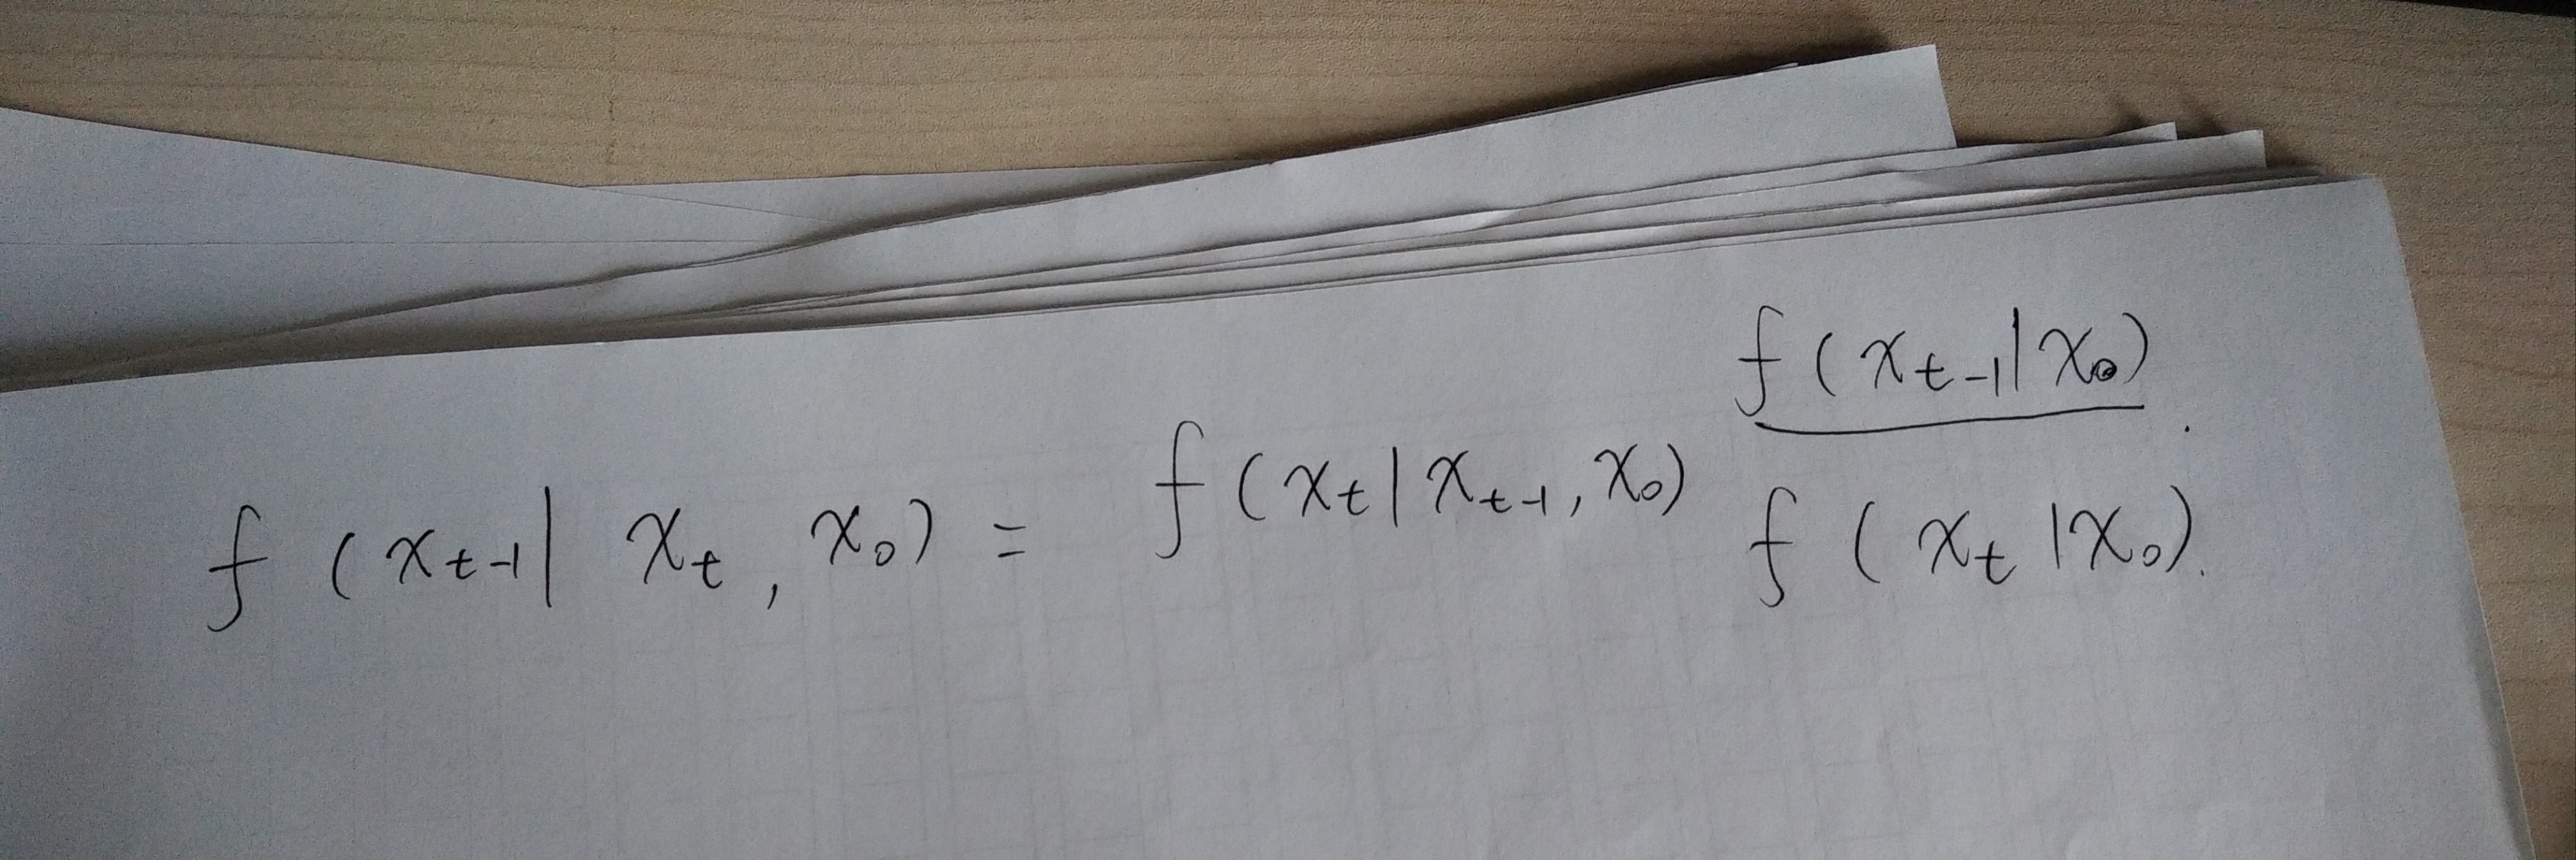 f(x_{t-1} | x_t, x_0) = f(x_t | x_{t-1}, x_0) \frac{f(x_{t-1} | x_0)}{f(x_t | x_0)}.